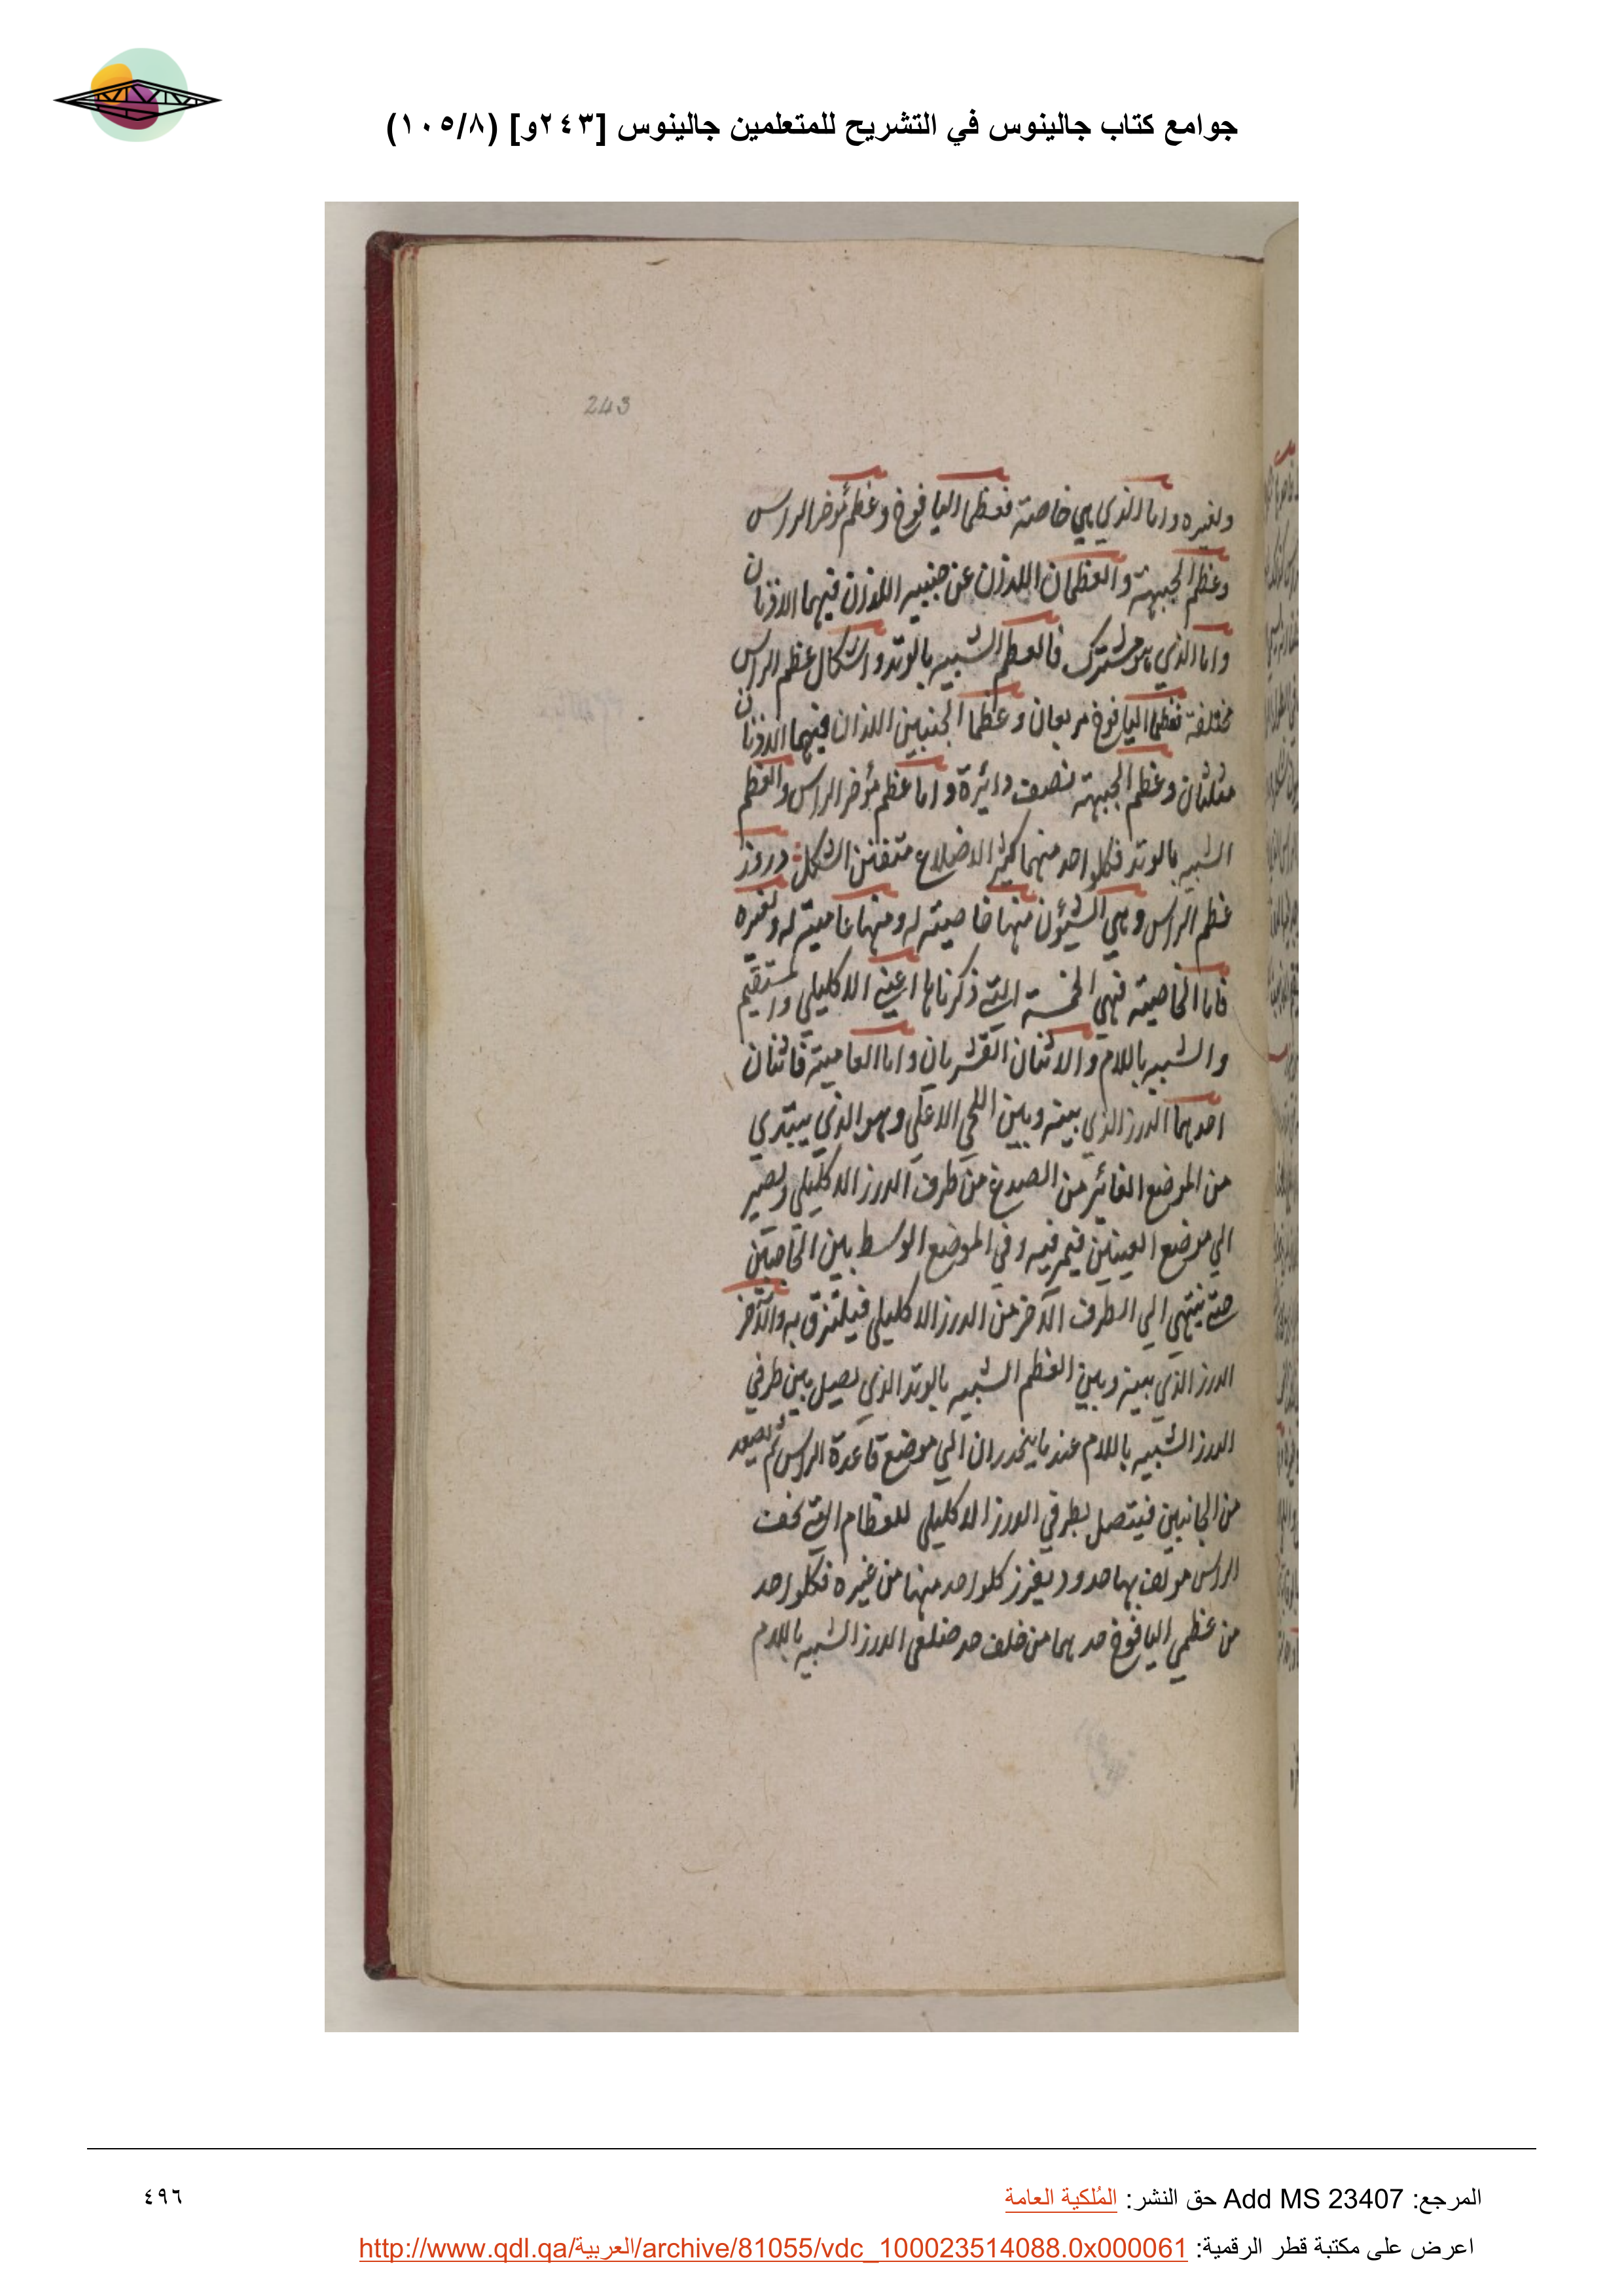 جوامع كتاب جالينوس في التشريح للمتعلمين جالينوس [٢٤٣و] (١٠٥/٨)
243
ولغيره واما الذي هي خاصته فعظما اليافوخ وعظم مؤخر الراس
وعظم الجبهة والعظمان اللذان عن جنبيه اللذان فيهما الاذنان
واما الذي هو مشترك فالعظم الشبيه بالوتد واشكال عظم الراس
مختلفة فعظما اليافوخ مربعان وعظما الجنبين اللذان فيهما الاذنان
مثلثان وعظم الجبهة نصف دائرة واما عظم مؤخر الراس والعظم
الشبيه بالوتد فكلواحد منهما كثير الاضلاع متفنن الشكل ودروز
عظم الراس وهي الشيؤن منها خاصيته له ومنها عاميته له ولغيره
فاما الخاصيته فهي الخمسة التي ذكرناها اعني الاكليلي والمستقيم
والشبيه باللام والاثنان القشريان واما العاميته فاثنان
احدهما الدرز الذي بينه وبين اللحي الاعلي وهو الذي يبتدي
من الموضع الغائر من الصدغ من طرف الدرز الاكليلي ويصير
الي موضع العينين فيمر فيه وفي الموضع الوسط بين الحاجبين
حتي ينتهي الي الطرف الآخر من الدرز الاكليلي فيلتزق به والآخر
الدرز الذي بينه وبين العظم الشبيه بالوتد الذي يصل بين طرفي
الدرز الشبيه باللام عندما ينحدران الي موضع قاعدة الراس ثم يصعد
من الجانبين فيتصل بطرفي الدرز الاكليلي للعظام التي تحف
الراس مولف بها حدود يفرز كلواحد منها من غيره فكلواحد
من عظمي اليافوخ حدهما من خلف حد ضلعي الدرز الشبيه باللام
المرجع: Add MS 23407 حق النشر: المُلكية العامة
٤٩٦
اعرض على مكتبة قطر الرقمية: http://www.qdl.qa/العربية/archive/81055/vdc_100023514088.0x000061